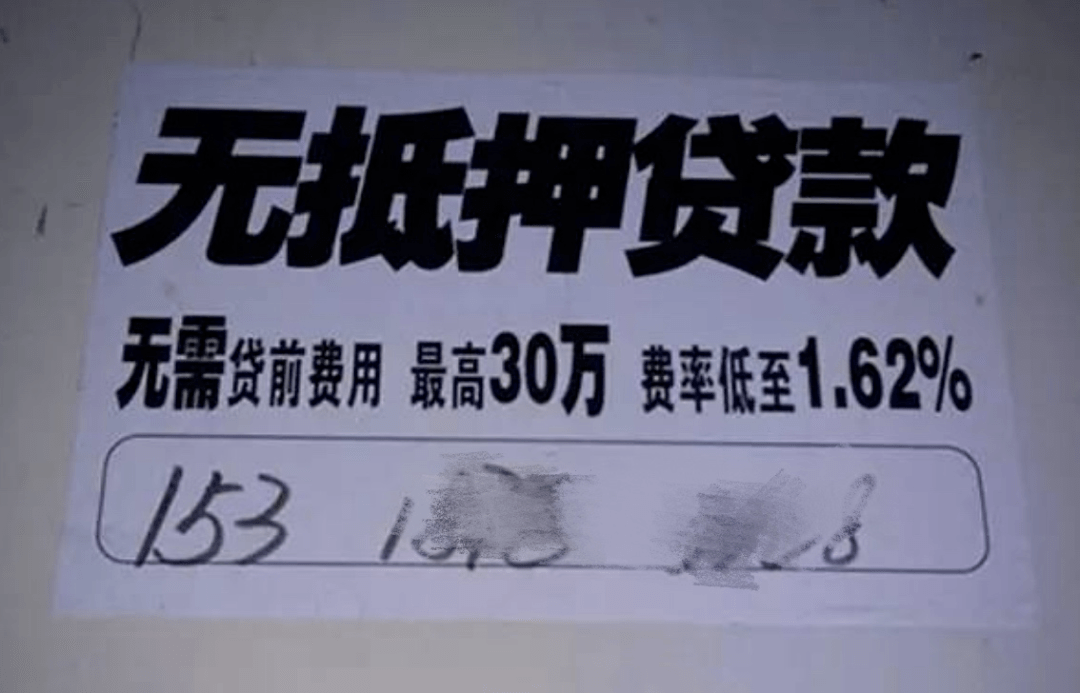 无抵押贷款
无需贷前费用 最高30万 费率低至1.62%
153